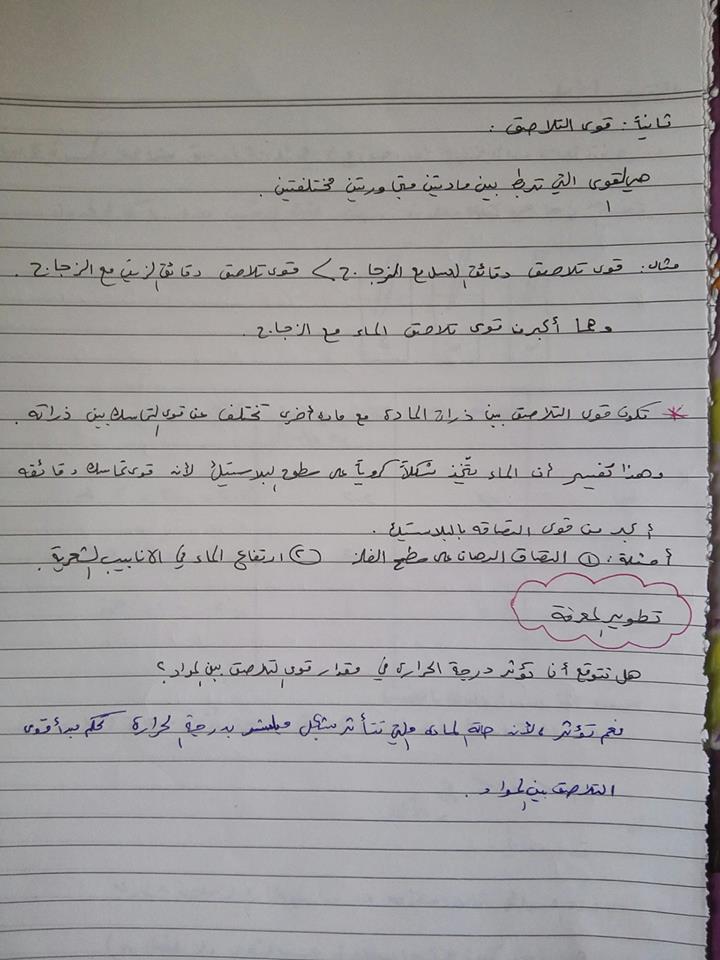 ثانياً: قوى التلاصق:
هي القوى التي تربط بين مادتين متجاورتين مختلفتين.
مثال: قوى تلاصق دقائق العسل مع الزجاج > قوى تلاصق دقائق الزيت مع الزجاج.
وهما أكبر من قوى تلاصق الماء مع الزجاج.
* تكون قوى التلاصق بين ذرات المادة مع مادة أخرى تختلف عن قوى التماسك بين ذراته.
وهذا تفسير أن الماء يتخذ شكلاً كروياً على سطوح البلاستيك لأنه قوى تماسك دقائقه
أكبر من قوى التصاقه بالبلاستيك.
أمثلة: ① التصاق الدهان على سطح الفلز ② ارتفاع الماء في الانابيب الشعرية.
تطوير المعرفة
هل تتوقع أن تؤثر درجة الحرارة في مقدار قوى التلاصق بين المواد؟
نعم تؤثر، لأنه حالة المادة والتي تتأثر بشكل مباشر بدرجة الحرارة تحكم مبدأ قوى
التلاصق بين المواد.